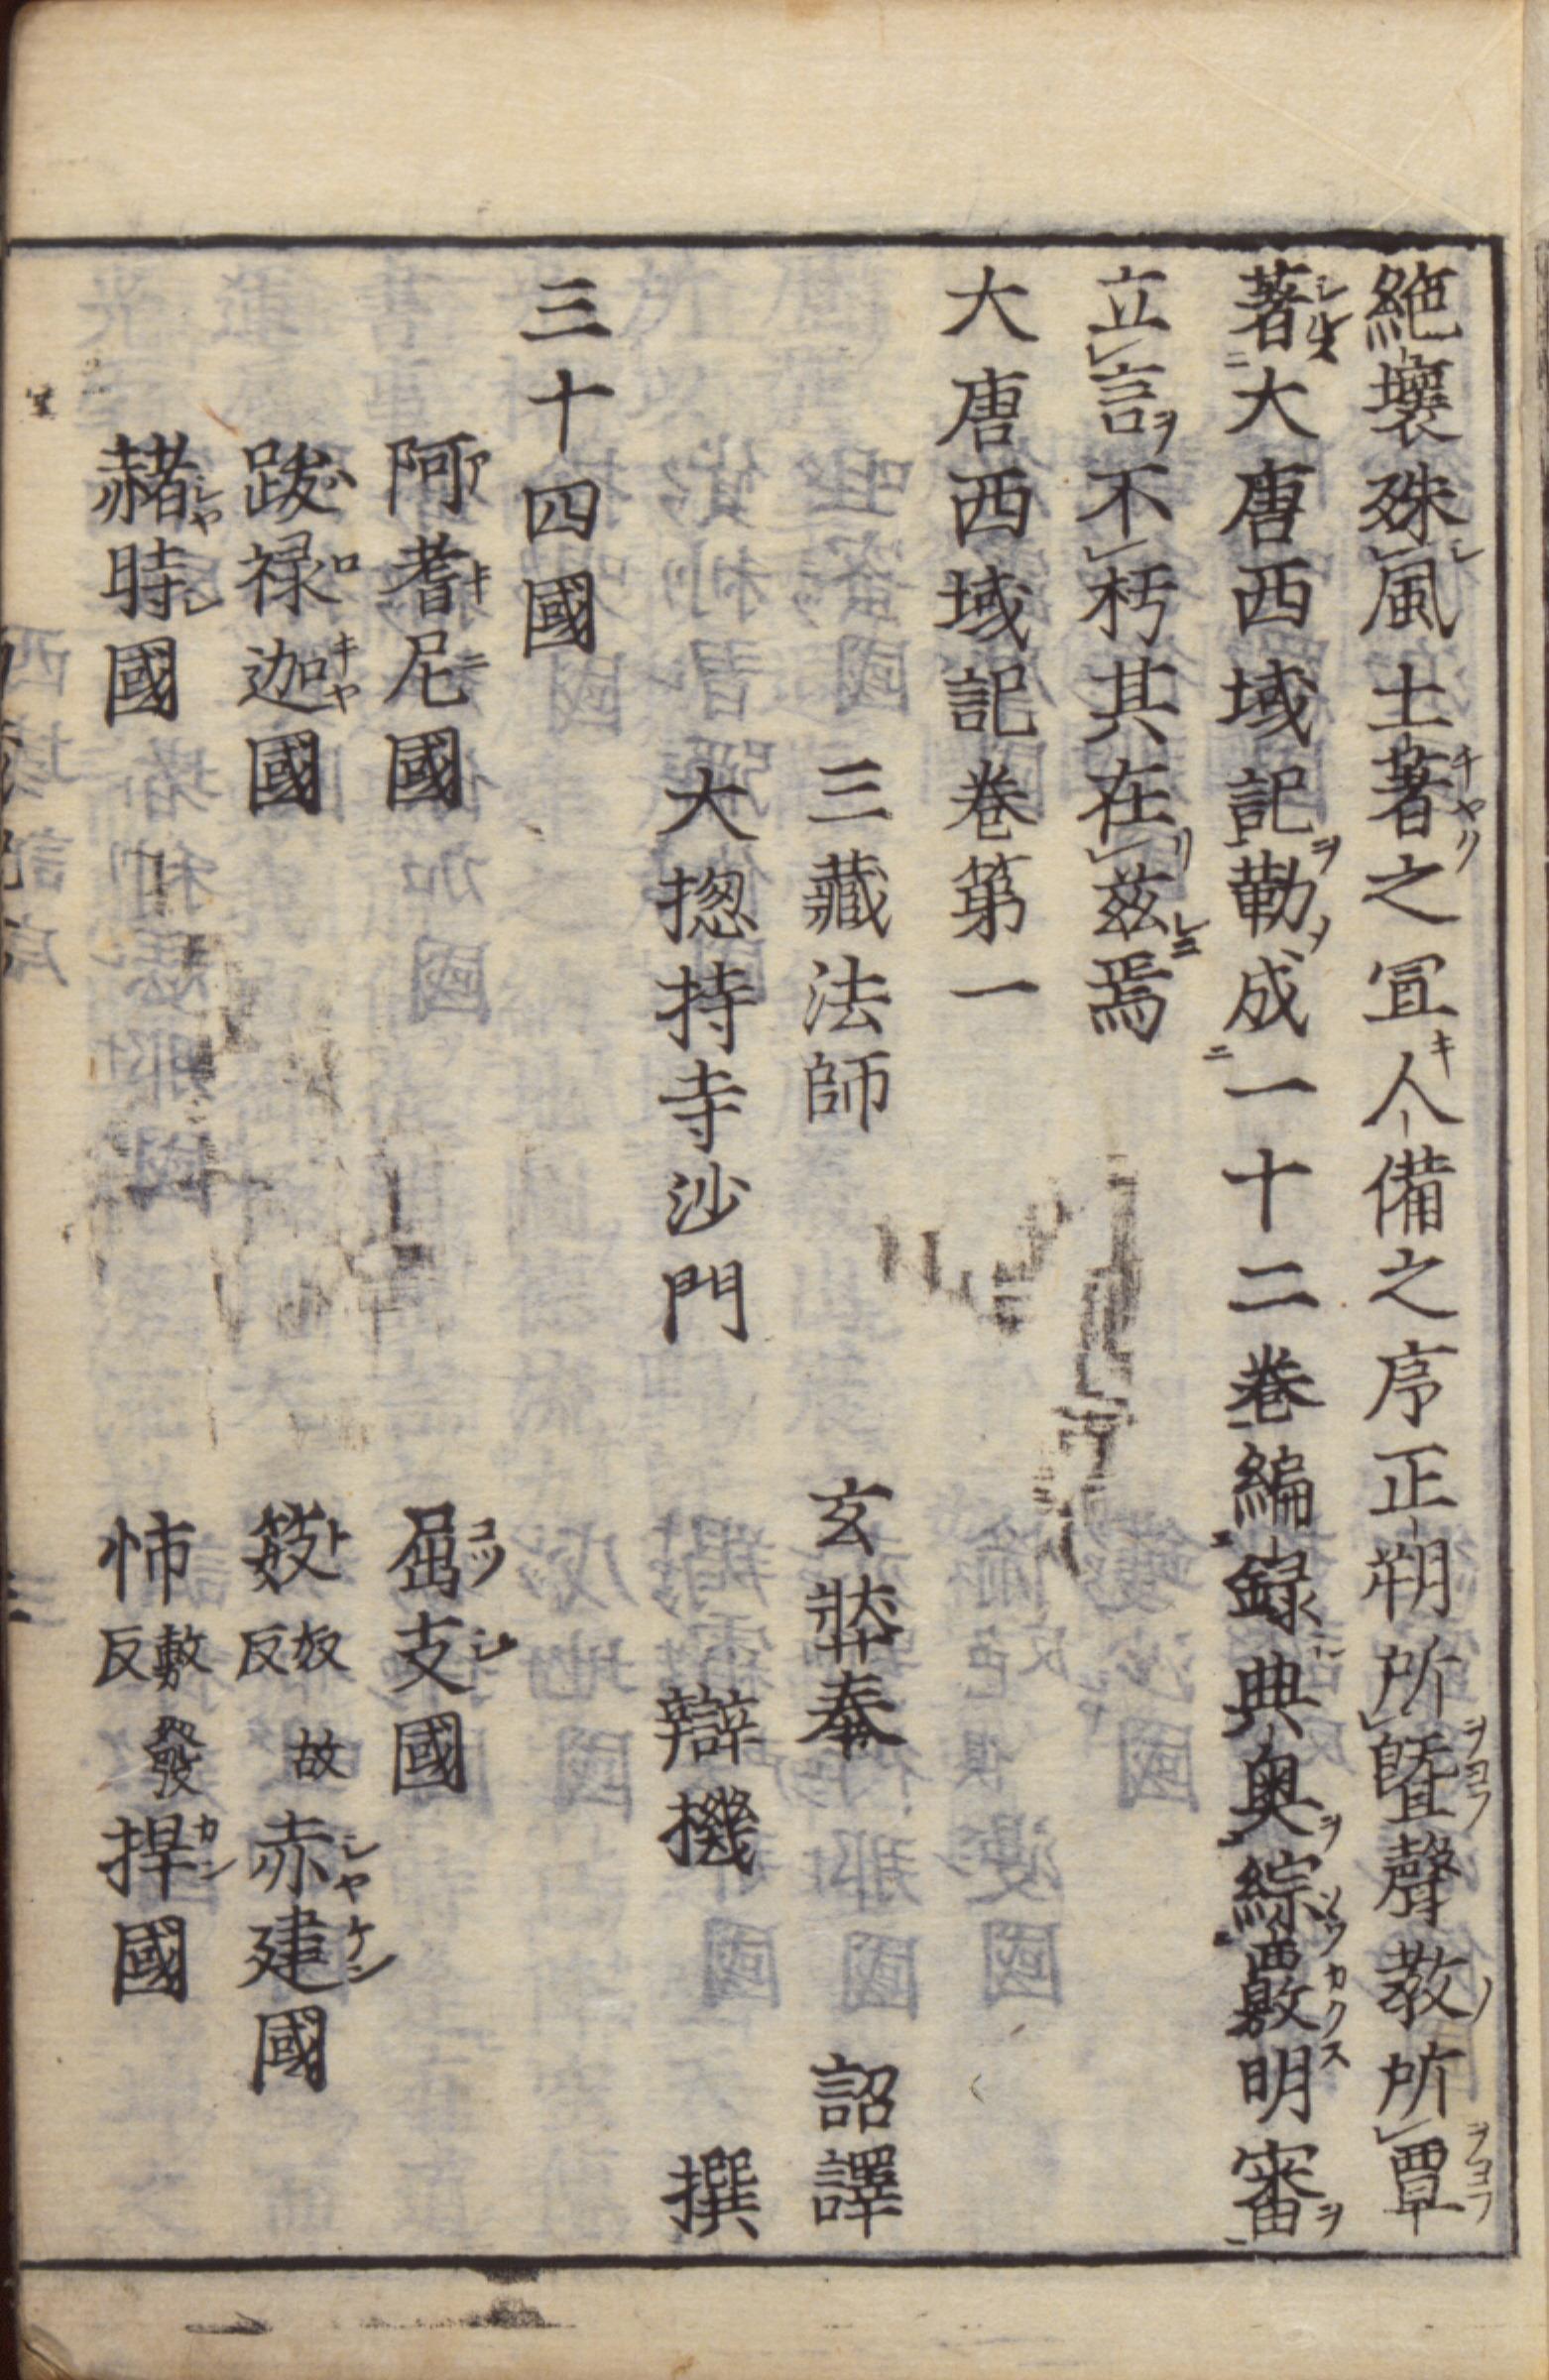 絶壤殊風土著之宜人備之序正朔所曁聲教所覃
著大唐西域記勒成一十二巻編録典奥綜覈明審
立言不朽其在茲焉
大唐西域記巻第一
三藏法師 玄奘奉 詔譯
大揔持寺沙門 辯機 撰
三十四國
阿耆尼國 屈支國
跋禄迦國 笯奴故反赤建國
赭時國 㤄敷發反捍國